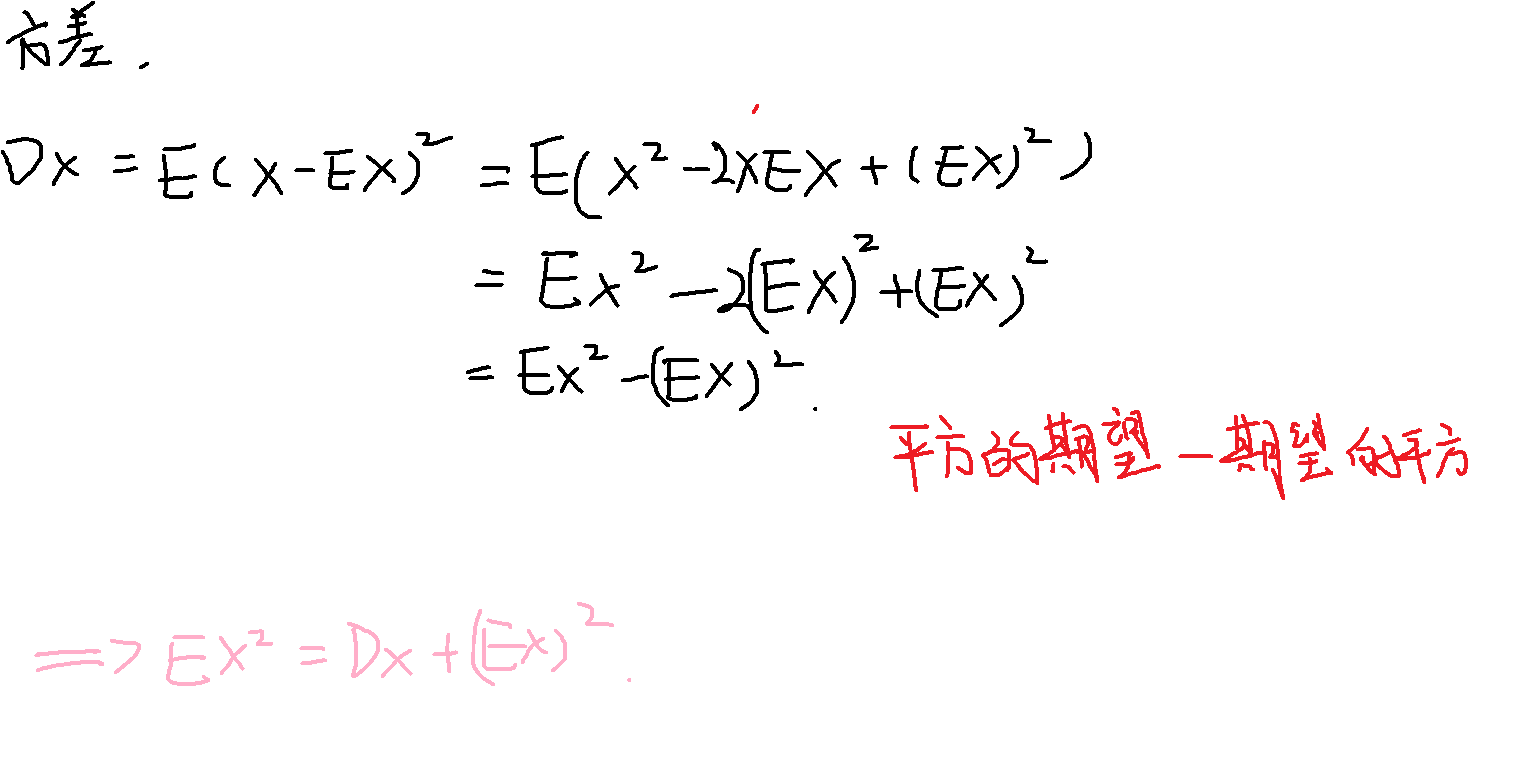 方差.
DX = E(X-EX)² = E(X²-2XEX+(EX)²)
= EX²-2(EX)²+(EX)²
= EX²-(EX)².
平方的期望-期望的平方
=> EX² = DX+(EX)².